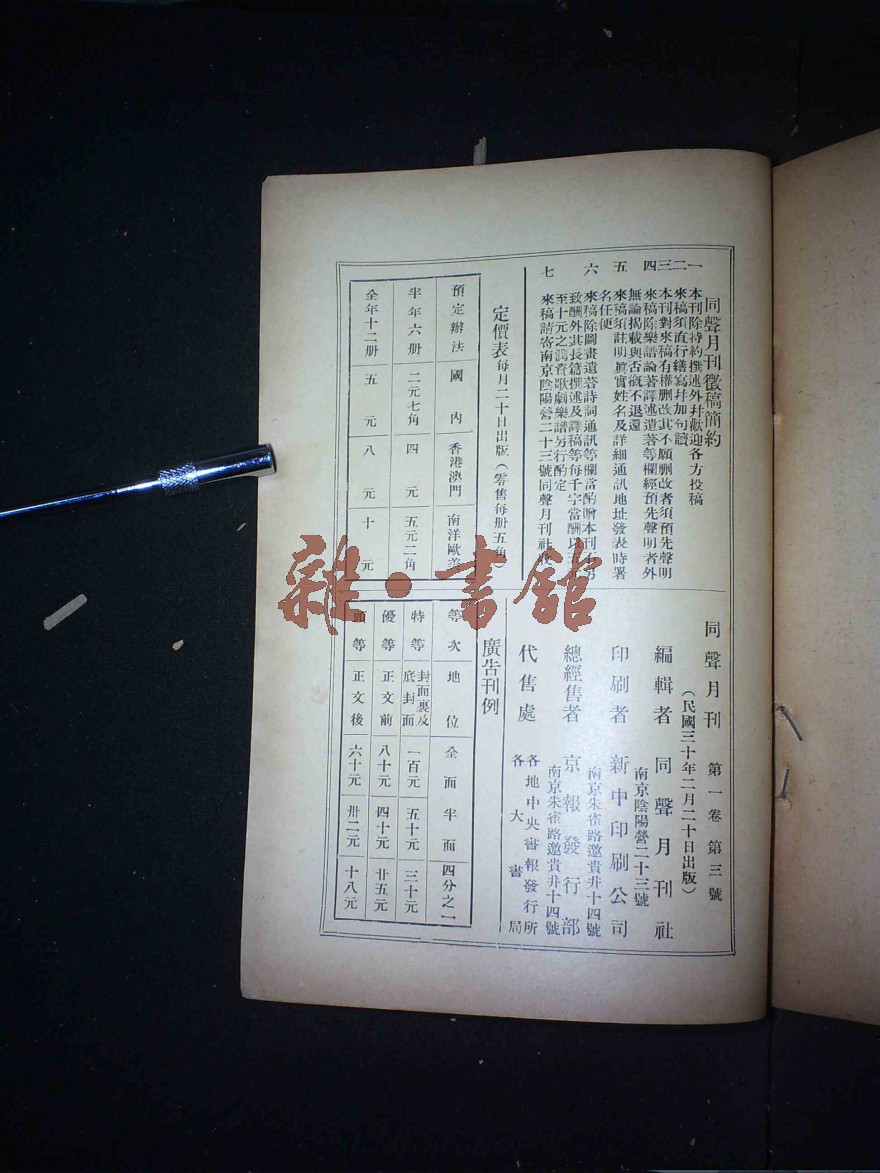 同聲月刊徵稿簡約
一 本刊除特約撰述外幷歡迎各方投稿
二 來稿須直行繕寫幷加句讀
三 本刊對來稿有權刪改其不願刪改者須預先聲明
四 來稿除樂譜論著譯述遺著等欄經預先聲明者外
無論揭載與否概不退還
五 來稿須註明眞實姓名及詳細通訊地址發表時署
名任便
六 來稿除圖畫遺著詩詞通訊等欄當酌贈本刊
致酬外其長篇撰述及譯稿等每千字當酬以
至十元之潤資歌劇樂譜另行酌定
七 來稿請寄南京陰陽營二十三號同聲月刊社
定價表 每月二十日出版(零售每册五角)
預定辦法 國內 香港澳門 南洋歐美
半年六册 二元七角 四元 五元二角
全年十二册 五元 八元 十元
同聲月刊 第一卷 第三號
(民國三十年二月二十日出版)
編輯者 同聲月刊社
南京陰陽營二十三號
印刷者 新中印刷公司
南京朱雀路邀貴井十四號
總經售者 京報發行部
南京朱雀路邀貴井十四號
代售處 各地中央書報發行所
各大書局
廣告刊例
等次 地位 全面 半面 四分之一
特等 封面裏及底封面 一百元 五十元 三十元
優等 正文前 八十元 四十元 廿五元
頭等 正文後 六十元 卅二元 十八元
雜·書館